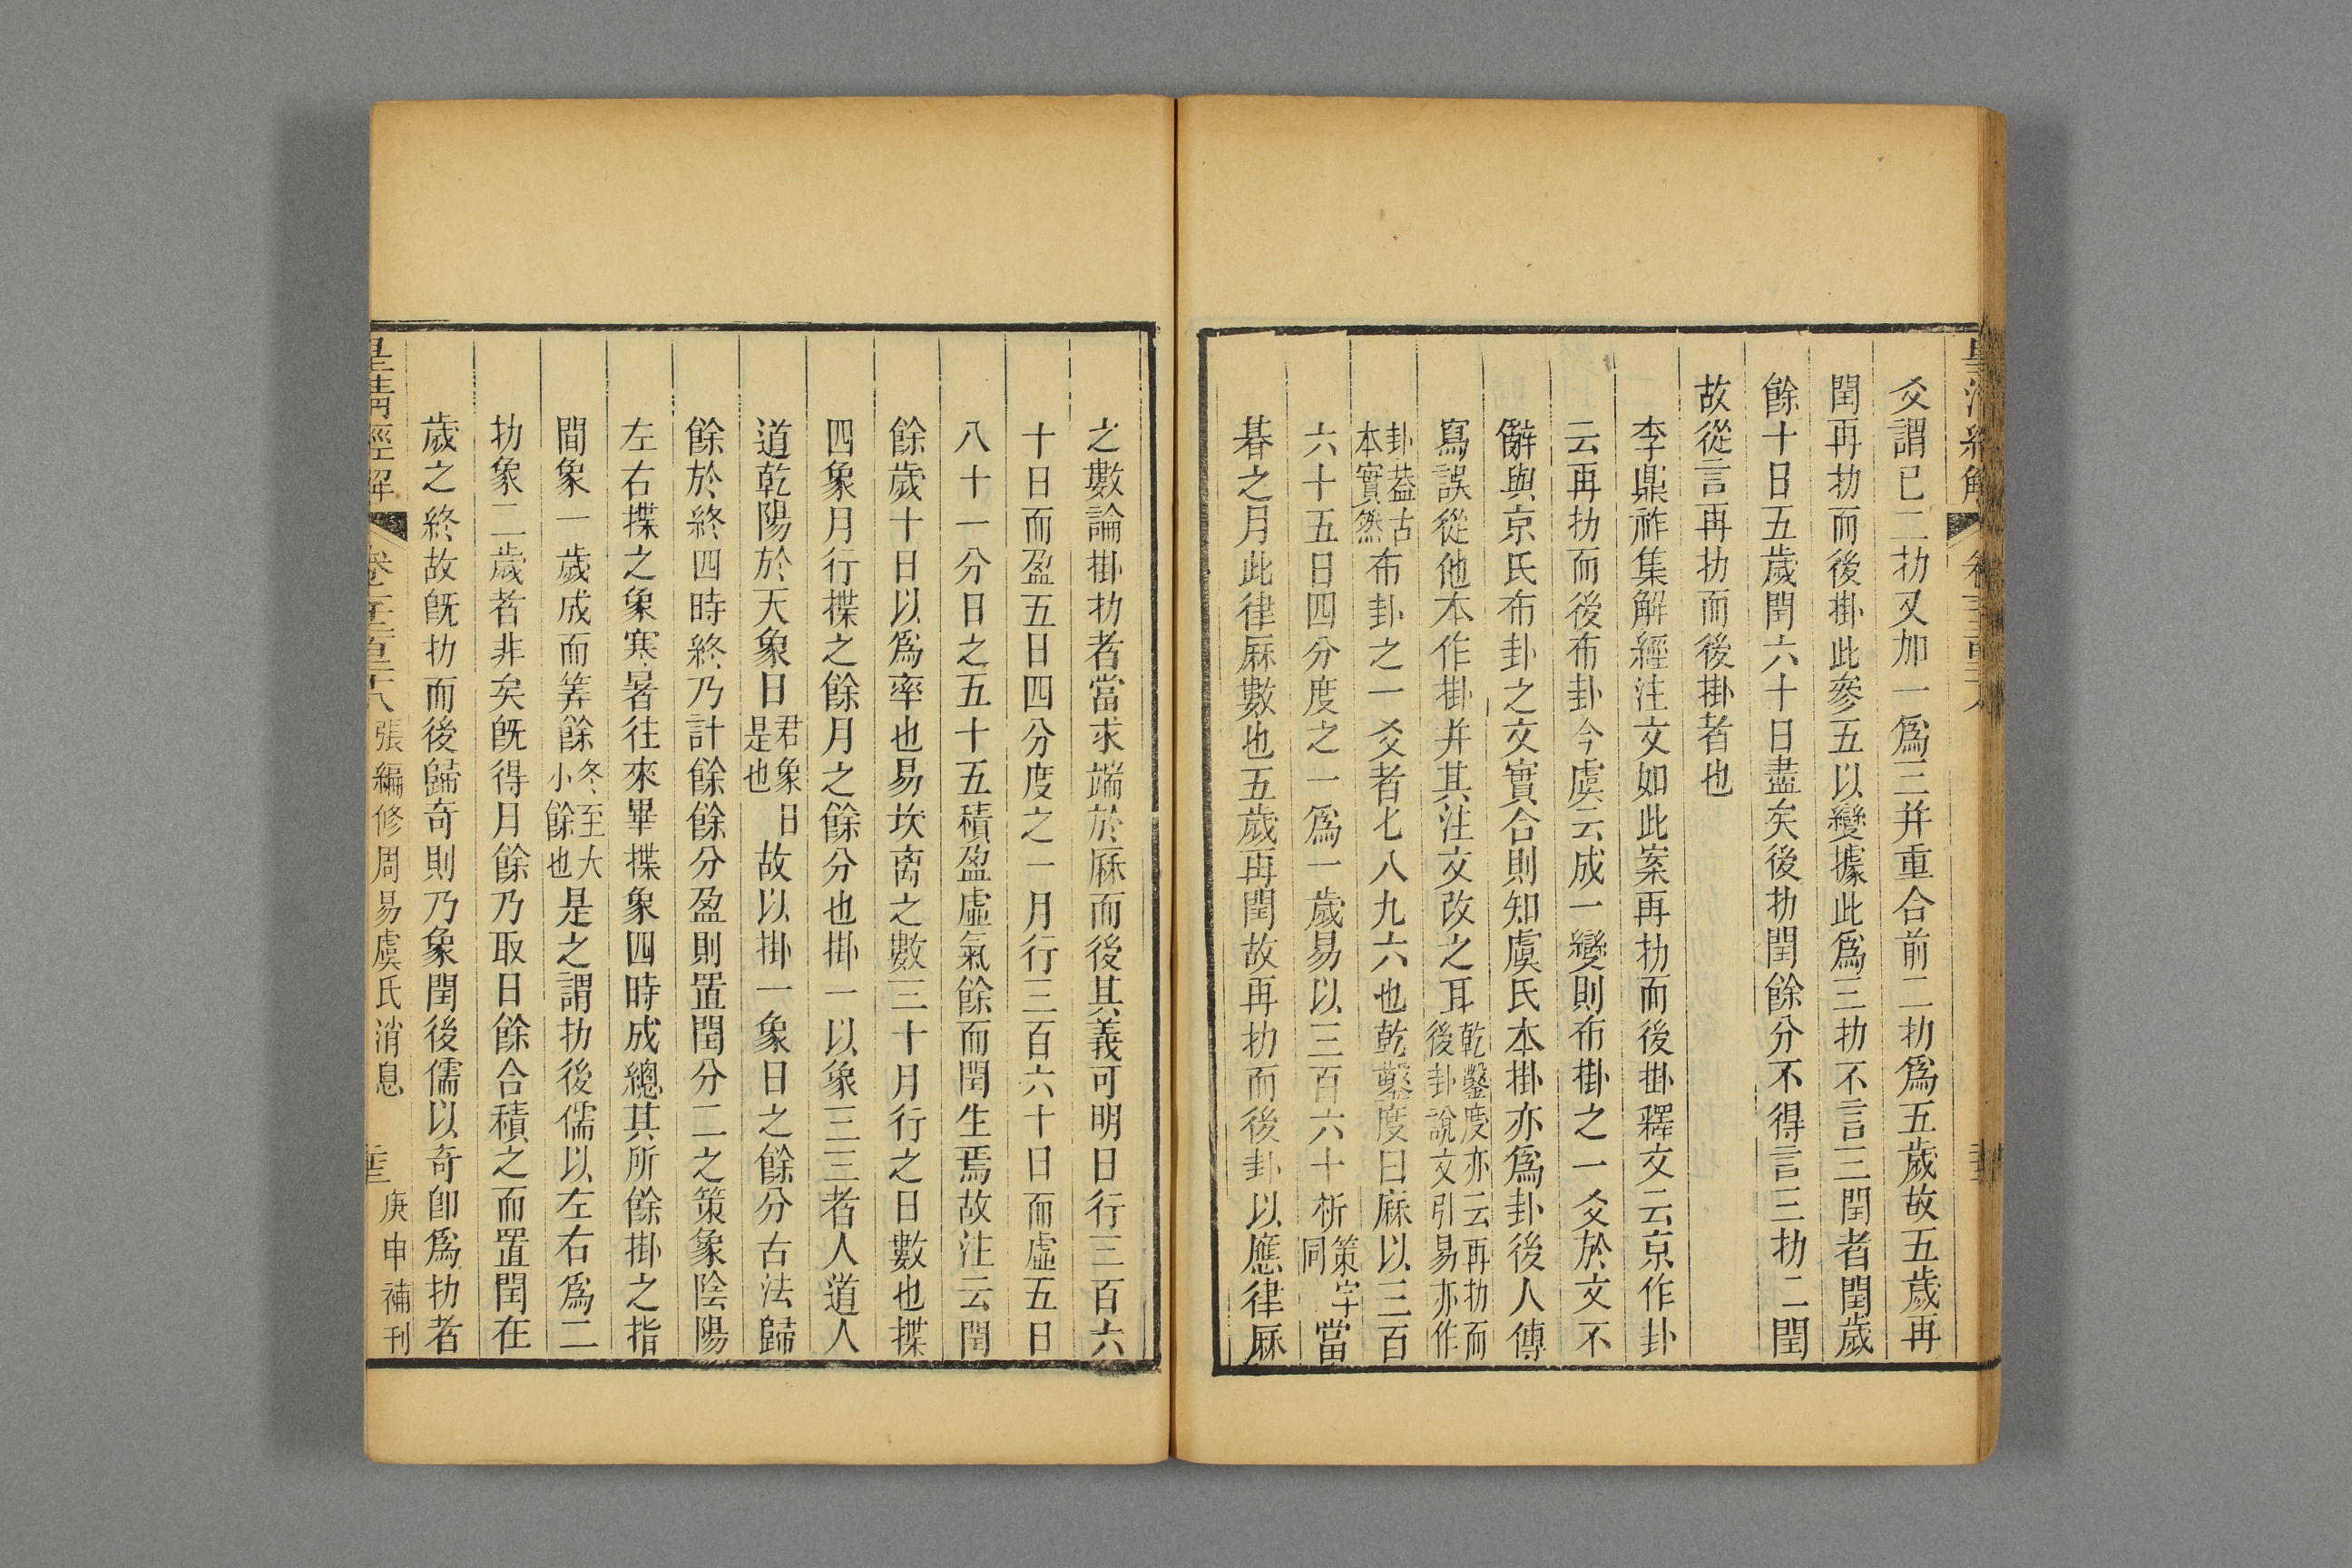 爻謂已二扐又加一爲三并重合前二扐爲五歲故五歲再
閏再扐而後掛此參五以變據此爲三扐不言三閏者閏歲
餘十日五歲閏六十日盡矣後扐閏餘分不得言三扐二閏
故從言再扐而後掛者也
李鼎祚集解經注文如此案再扐而後掛釋文云京作卦
云再扐而後布卦今虞云成一變則布掛之一爻於文不
辭與京氏布卦之文實合則知虞氏本掛亦爲卦後人傳
寫誤從他本作掛并其注文改之耳乾鑿度亦云再扐而後卦說文引易亦作
卦葢古本實然布卦之一爻者七八九六也乾鑿度曰厤以三百
六十五日四分度之一爲一歲易以三百六十析策字同當
朞之月此律厤數也五歲再閏故再扐而後卦以應律厤
之數論掛扐者當求端於厤而後其義可明日行三百六
十日而盈五日四分度之一月行三百六十日而虛五日
八十一分日之五十五積盈虛氣餘而閏生焉故注云閏
餘歲十日以爲率也易坎离之數三十月行之日數也揲
四象月行揲之餘月之餘分也掛一以象三三者人道人
道乾陽於天象日君象日是也故以掛一象日之餘分古法歸
餘於終四時終乃計餘餘分盈則置閏分二之策象陰陽
左右揲之象寒暑往來畢揲象四時成總其所餘掛之指
間象一歲成而筭餘冬至大小餘也是之謂扐後儒以左右爲二
扐象二歲者非矣旣得月餘乃取日餘合積之而置閏在
歲之終故旣扐而後歸奇則乃象閏後儒以奇卽爲扐者
皇清經解 張編修周易虞氏消息 庚申補刊